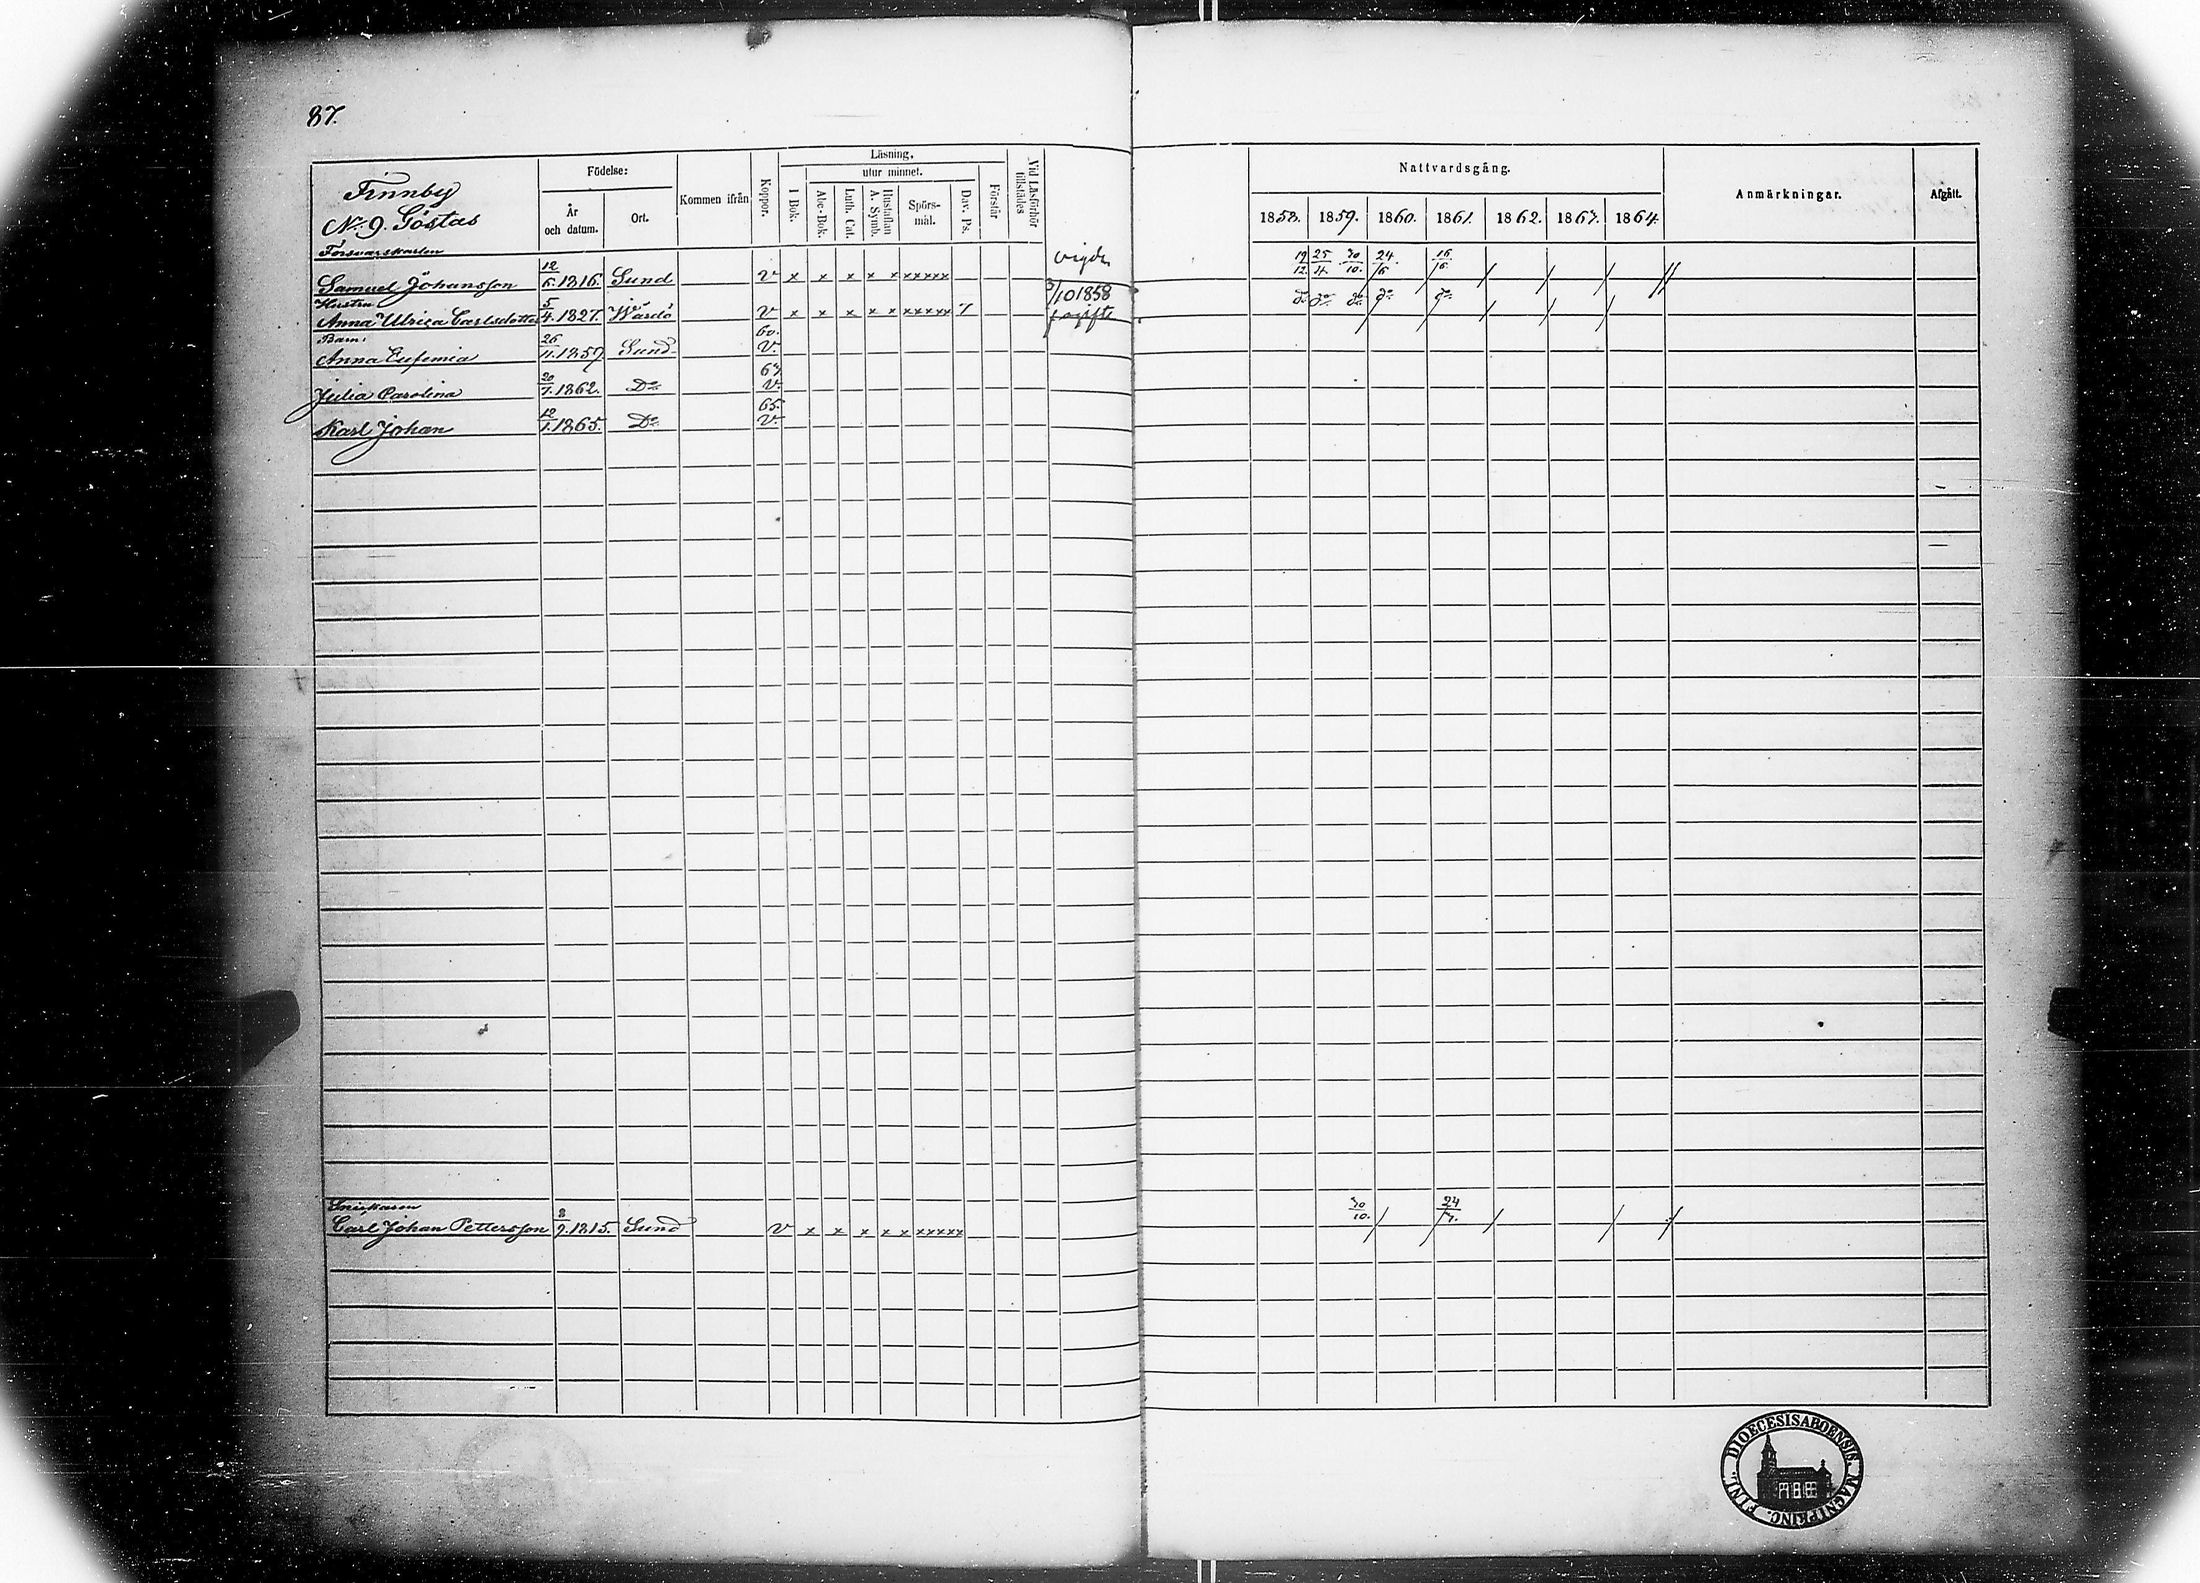 87.
Finnby
No 9. Göstas
Födelse:
År och datum.
Ort.
Kommen ifrån
Koppor.
Läsning,
I Bok.
utur minnet.
Abc-Bok.
Luth. Cat.
Hustaflan A. Symb.
Spörs-mål.
Dav. Ps.
Förstår
Vid Läsförhör tillstädes
Nattvardsgång.
1858. 1859. 1860. 1861. 1862. 1863. 1864.
Anmärkningar.
Afgått.
Försvarskarlen
Samuel Johansson 12/6.1816. Sund v x x x x x xxxxx vigde 19/12. 25/4. 30/10. 24/6 16/6.
Hustru
Anna Ulrica Carlsdotter 5/4.1827. Wårdö v x x x x x xxxxx 7 3/10 1858 do do do do do
Barn:
Anna Eufemia 26/11.1859 Sund 60. v.
Julia Carolina 20/7.1862. Do 63. v.
Karl Johan 12/1.1865. Do 65. v.
Snickaren
Carl Johan Pettersson 8/9.1815. Sund v x x x x x xxxxx 30/10. 24/
FINL. DIOECESIS ABOENSIS. MAGNI PRINC.